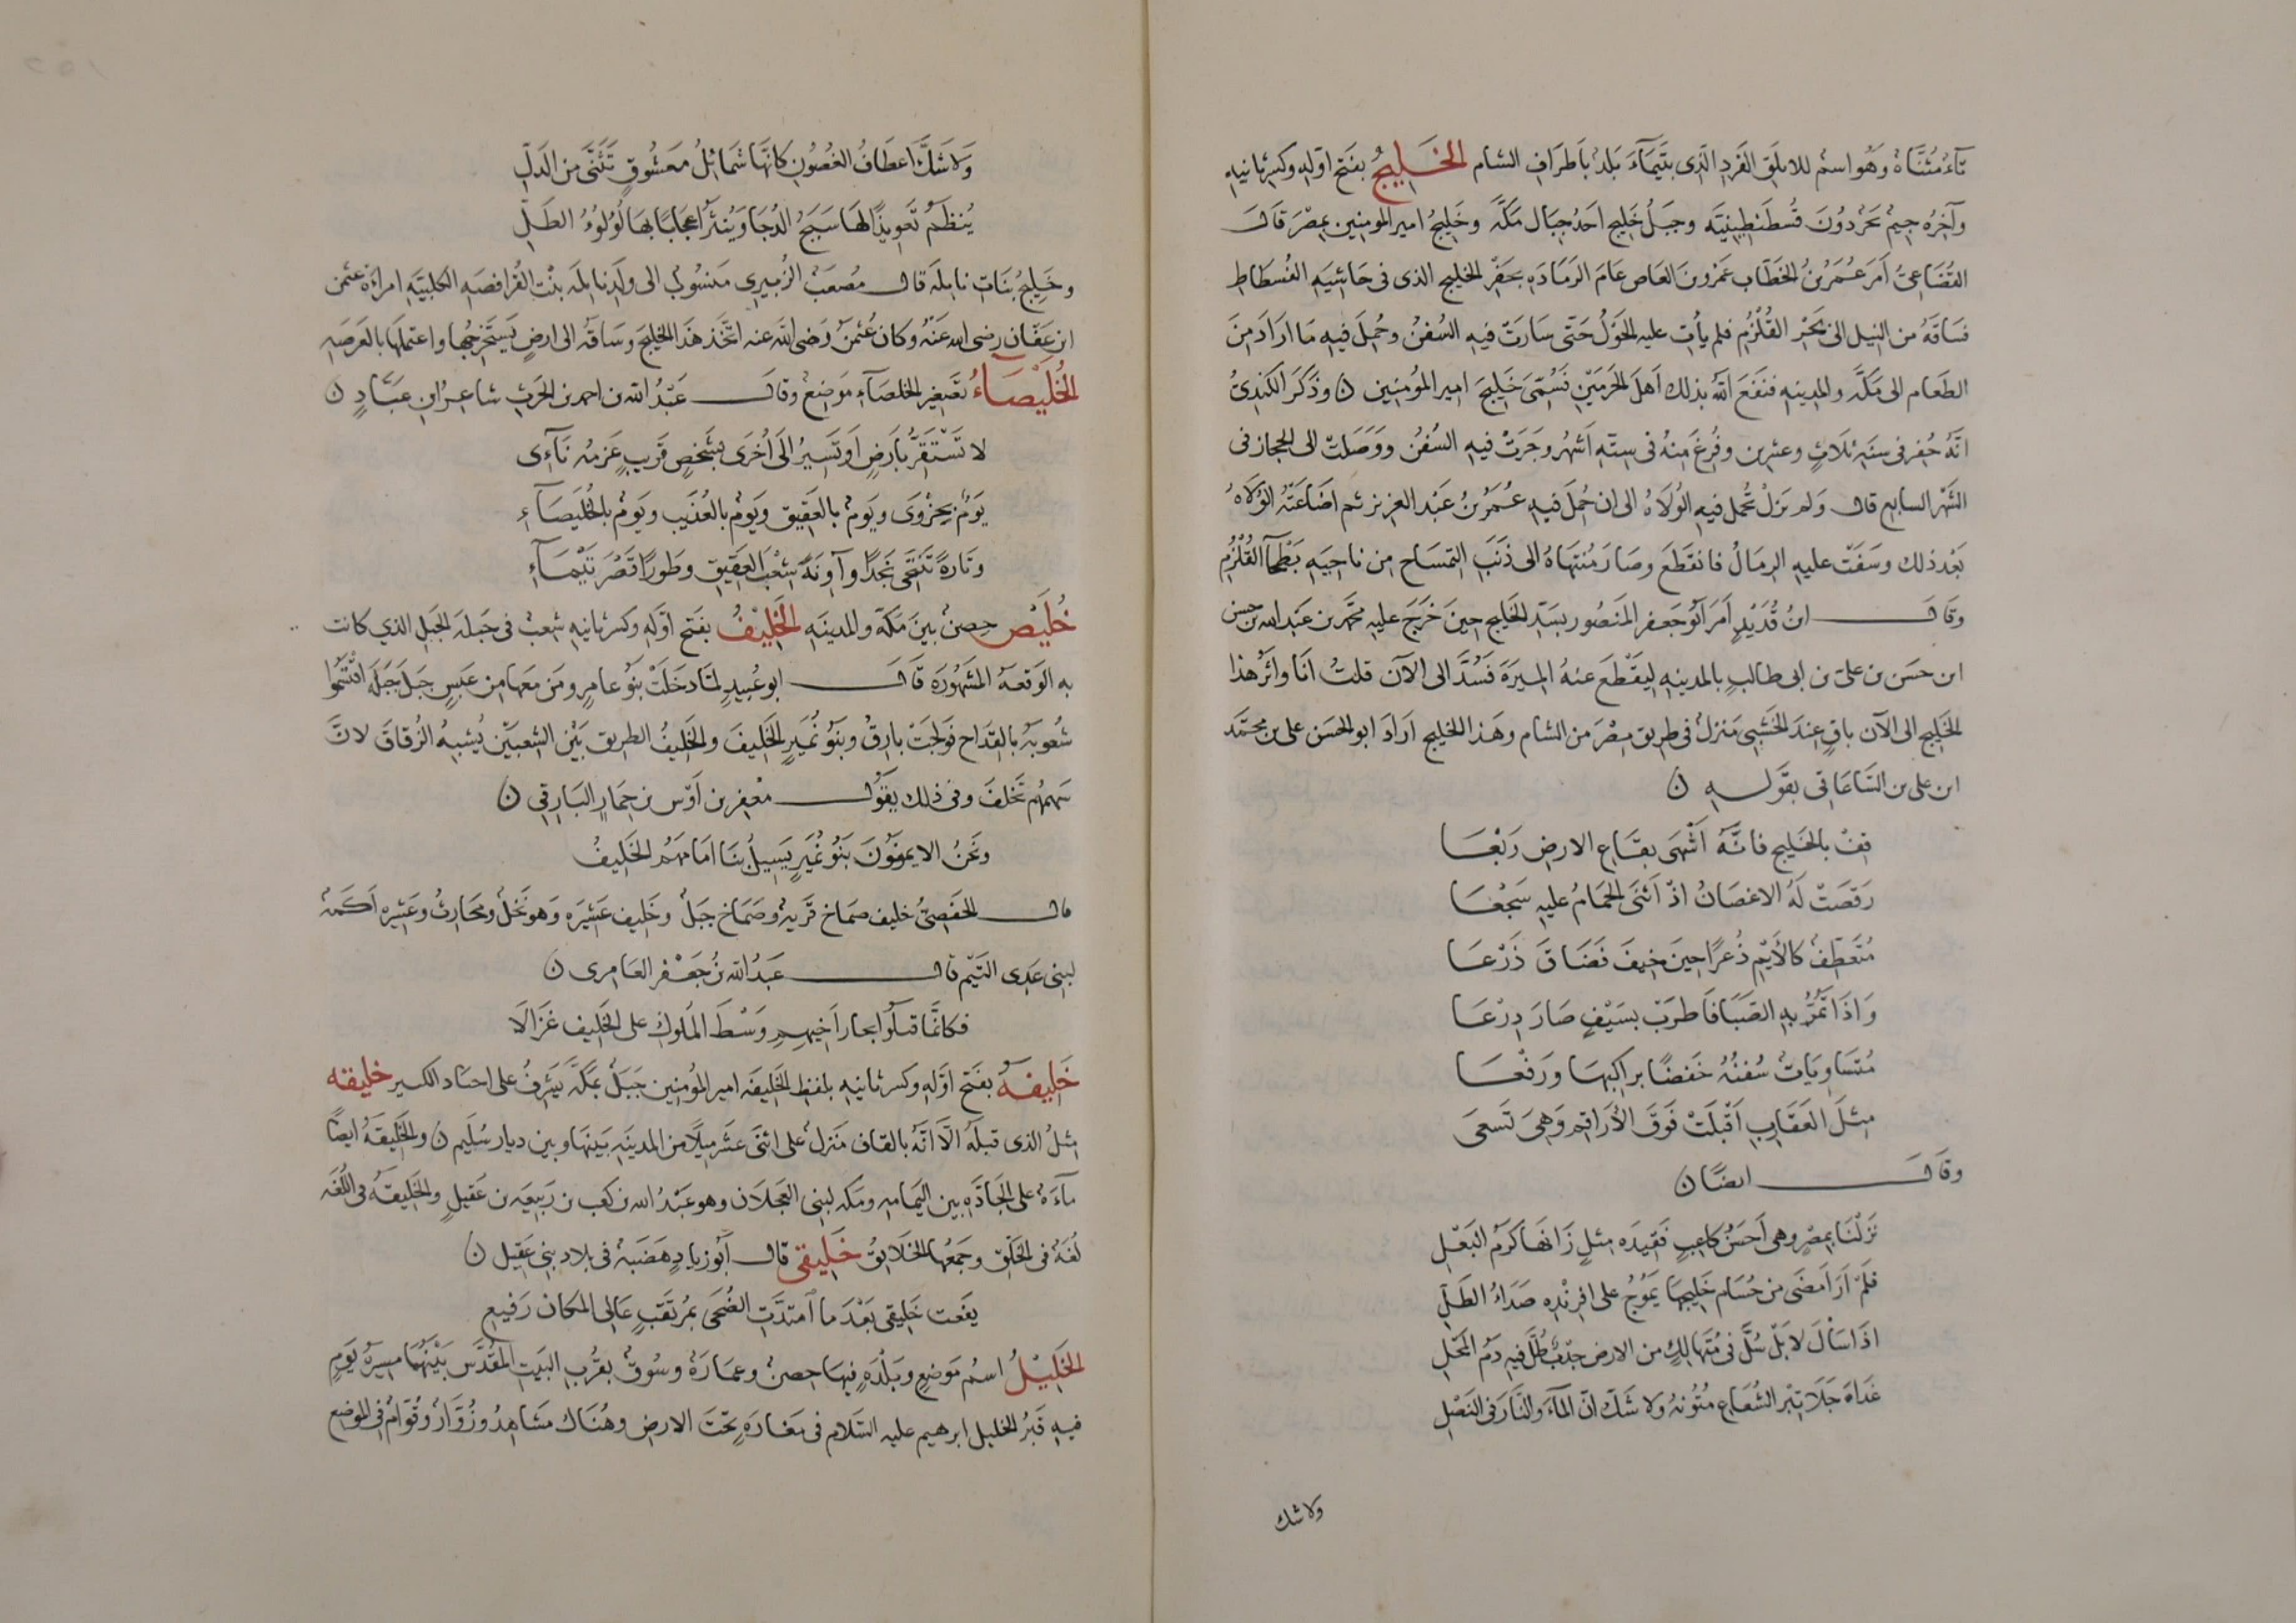 تآءٌ مُثنَّاةٌ وَهُو اسمٌ للابلَق الفَردِ الَّذى بتَيمَآءَ بَلدٌ بأَطرَافِ الشام الخَلِيجُ بفَتح اوّلِهِ وكسر ثانيهِ
وآخِرُهُ جيمٌ بَحرٌ دُونَ قُسطَنطِينيَّه وجبَلُ خَلِيج احَدُ جبَال مكَّهَ وخَلِيجُ امير المومنين بمِصْرَ قالَ
القُضَاعىُّ اَمَرَ عُمَرُ بنُ الخطَّاب عَمْرو بنَ العَاص عَامَ الرَمَادَهِ بحَفْر الخليج الذى فى حَاشيَهِ الفُسطَاطِ
فسَاقَهُ من النيل الى بَحْر القُلْزُم فلم يأت عليه الحَوْلُ حَتّى سَارَتْ فيهِ السُفنُ وحُمِلَ فيهِ مَا ارَادَ مِنَ
الطعَام الى مَكّهَ والمدِينهِ فنَفَعَ اللّهُ بذلك اَهلَ الحَرَمَيْنِ فَسُمّىَ خَلِيجَ امير المُؤمنِين ن وذَكَرَ الكندِىُّ
انّهُ حُفِر فى سنَهِ ثلَاثٍ وعشرين وفُرغَ مِنهُ فى ستّهِ اَشهُرٍ وجَرَتْ فيهِ السُفنُ ووَصَلَتْ الى الحجاز فى
الشَهْر السابع قال وَلم يزلْ تُحمل فيهِ الوُلَاهُ الى ان حُمِلَ فيهِ عُمَرُ بنُ عَبْد العزيز ثم اضَاعَتْهُ الوُلَاهُ
بَعْد ذلك وسَفَتْ عليهِ الرِمَالُ فانقَطَعَ وصَارَ مُنتهَاهُ الى ذَنَبِ التمسَاح من ناحِيَهِ بَطْحَآ القُلْزُم
وقالَ ابنُ قُدَيْدٍ اَمَرَ ابُو جَعفر المَنصُور بسَدّ الخَلِيج حِينَ خَرَجَ عليهِ محمّد بن عَبْد الله بن حسن
ابن حسَن بن علىّ بن ابى طالبٍ بالمدينهِ ليَقْطَعَ عنهُ المِيرَهَ فَسُدَّ الى الآن قلتُ انَا واثَرُ هذا
الخَلِيج الى الآن باقٍ عِندَ الخَشَبِى مَنزلٌ فى طريق مِصْرَ من الشام وهَذا الخليج ارَادَ ابو الحسَن على بن محمَّد
ابن على بن السَاعَاتى بقَولهِ ن
قِفْ بالخَليج فانَّهُ اَشْهَى بقَاع الارضِ رَبْعَا
رَقصَتْ لَهُ الاغصَانُ اذْ اَثنَى الحَمَامُ عليهِ سَجْعَا
مُتعَطِفٌ كالأَيْمِ ذُعرًا حِينَ خِيفَ فَضَاقَ ذَرْعَا
وَاذَا تَمُرُّ بهِ الصَبَا فَاطرَبْ بسَيْفٍ صَارَ دِرْعَا
مُتسَاوِيَاتٌ سُفنُهُ خَفضًا براكِبِهَا ورَفعَا
مِثلَ العَقَارِبِ اَقْبَلَتْ فَوَقَ الأَرَاقِم وَهىَ تَسعَى
وقالَ ايضًا ن
نَزَلْنَا بمِصْرٍ وهى اَحسَنُ كاعِبٍ فَقِيدَه مِثلٍ زَانَهَا كَرَمُ البَعْلِ
فلَمْ أَرَ اَمضَى من حُسَام خَلِيجهَا يَمُوجُ على افرِنْدِه صَدَاءُ الطَلِّ
اذَا سَالَ لا بَلْ سُلَّ فى مُتهَالِكٍ من الارض جدْبٍ طُلَّ فيهِ دَمُ المَحْلِ
غدَاهَ جَلَا تِبْرُ الشُعَاعِ مُتُونهُ ولا شَكَّ انّ المآءَ والنَّارَ فى النَصْلِ
ولا شك
وَلا شَكَّ اعطَافُ الغُصُونِ كانهَّا شَمَائلُ مَعشُوقٍ تَثَنَّى من الدَلِّ
يُنظّمُ تَعوِيذًا لهَا سَبَجُ الدُجَا وَيُنثَرُ اعجَابًا بهَا لُؤلُؤُ الطَلّ
وخَلِيجُ بنَاتِ نايِلَهَ قال مُصعَبٌ الزُبيرِى مَنسُوبٌ الى ولَدِ نايلَهَ بنْت الفُرافصَهِ الكلبيَّهِ امراَهْ عثمن
ابن عفَّان رضى اللهُ عَنْهُ وكان عُثمنُ رَضى اللّهُ عنه اتَّخَذ هَذَا الخليجَ وسَاقَهُ الى ارضٍ يَستَخرِجُها واعتملَهَا بالعَرصَهِ
الخُلَيْصَاءُ تصغِير الخلصَآءِ مَوضِعٌ وقالَ عَبْدُ الله بن احمد بن الحرثِ شاعِرُ ابن عَبَّادٍ ن
لا تَسْتَقِرُّ بأَرضٍ اَو تَسِيرُ الَى اُخرَى بشَخصٍ قَرِيبٍ عَزمُه نآءى
يَومٌ بحُزْوَى ويَومٌ بالعَقيق ويَومٌ بالعُذَيب ويَومٌ بالخُلَيصَآءِ
وتَارةً تَنتَحى نجَدًا وآوِنَهً شعْبَ العَقيق وطَورًا قصْرَ تَيْمَآءِ
خُلَيْصٌ حِصنٌ بينَ مَكّهَ والمدينَهِ الخَلِيْفُ بفَتح اوّلهِ وكسر ثانيهِ شعبٌ فى جَبلَهَ الجَبَلِ الذى كانت
به الوَقعهُ المَشهُورَه قالَ ابو عُبيدٍ لمَّا دخَلَتْ بنُو عامرٍ ومَن معَهَا من عَبسٍ جبَلَ جَبَلَهَ اقتسَمُوا
شعُوبَهُ بالقِدَاح فوَلجَتْ بارِقٌ وبنُو نُمَيرٍ الخَلِيفَ والخَلِيفُ الطريق بَيْن الشعبَيْن يُشبِهُ الزُقاقَ لانَّ
سَهمَهُم تَخلفَ وفى ذلك يقُولُ مُعقِر بن اَوْس بن حِمَارِ البَارِقِى ن
ونحْنُ الايمنُونَ بنُو نُمَيرٍ يَسيِلُ بنَا امَامَهُم الخَلِيفُ
قال الحَفصىُّ خليف صَمَاخٍ قَريهٌ وصَمَاخ جبَلٌ وخَلِيف عَشيرَه وَهو نَخلٌ ومَحَارِثُ وعَشِيره اَكمَهٌ
لبنى عَدى التَيْم قال عَبدُ الله بنُ جَعْفر العَامِرى ن
فكانَّما قتلُوا بجار اَخيهِمِ وَسْطَ المَلوُكِ على الخَلِيف غَزَالَا
خَلِيفَهُ بفَتح اوّلهِ وكسر ثانيهِ بلفظِ الخَلِيفَه امير المؤمنِين جبَلٌ بمَكّهَ يُشرفُ على اجيَاد الكبير خليقه
مِثلُ الذى قبلَهُ الَّا انّهُ بالقاف مَنزلٌ على اثنَى عَشَر مِيلًا من المدينَهِ بَينَهَا وبين ديار سُلَيم ن والخَلِيقَهُ ايضًا
مآءَةٌ على الجَادَّهِ بين اليمَامهِ ومَكّه لبنى العَجلَان وهو عَبْدُ الله بن كعب بن رَبيعَه بن عُقيلٍ والخَلِيقَهُ فى اللُغَه
لُغَهٌ فى الخَلْق وجَمعُها الخَلايقُ خَلِيقى قال اَبُو زيادٍ هَضبَهٌ فى بلاد بنى عَقِيل ن
يفَعت خَلِيقى بَعْدَ ما امتَدَّتِ الضُحَى بمُرتَقَبٍ عَالِى المكان رَفِيعِ
الخَلِيْلُ اسمُ مَوضعٍ وبَلْدَهٍ فيهَا حصنٌ وعمَارَهٌ وسُوقٌ بقُرْبِ البَيتِ المُقَدَّسِ بَيْنَهُمَا مسِيرَهُ يَومٍ
فيهِ قَبْرُ الخليل ابرهيم عليه السّلام فى مغَارَهٍ تحْتَ الارض وهُنَاك مَشاهِدُ وزُوَّارٌ وقُوَّامٌ فى الموضع